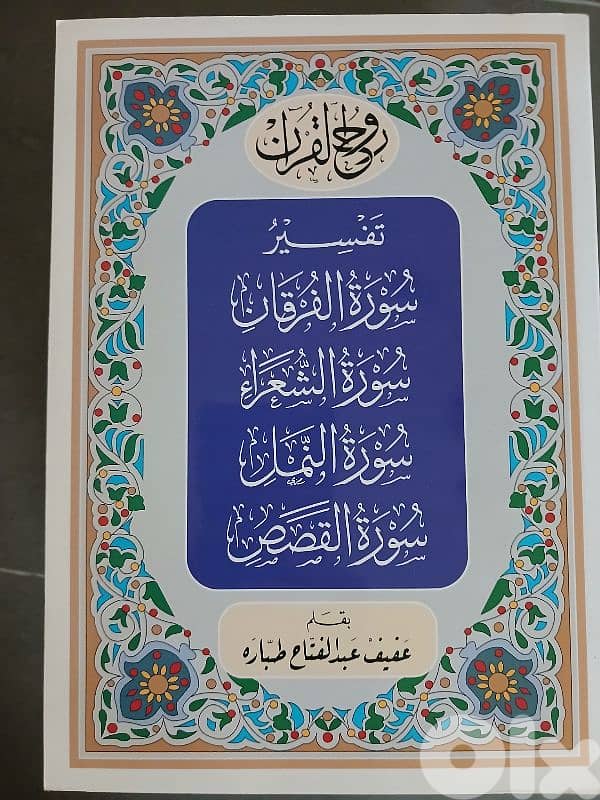 روح القرآن
تَفْسِيْرُ
سُورَةُ الفُرقَانِ
سُورَةُ الشُّعَرَاءِ
سُورَةُ النَّملِ
سُورَةُ القَصَصِ
بقلم
عَفيفْ عَبدالفتَّاح طبَّارَه
olx